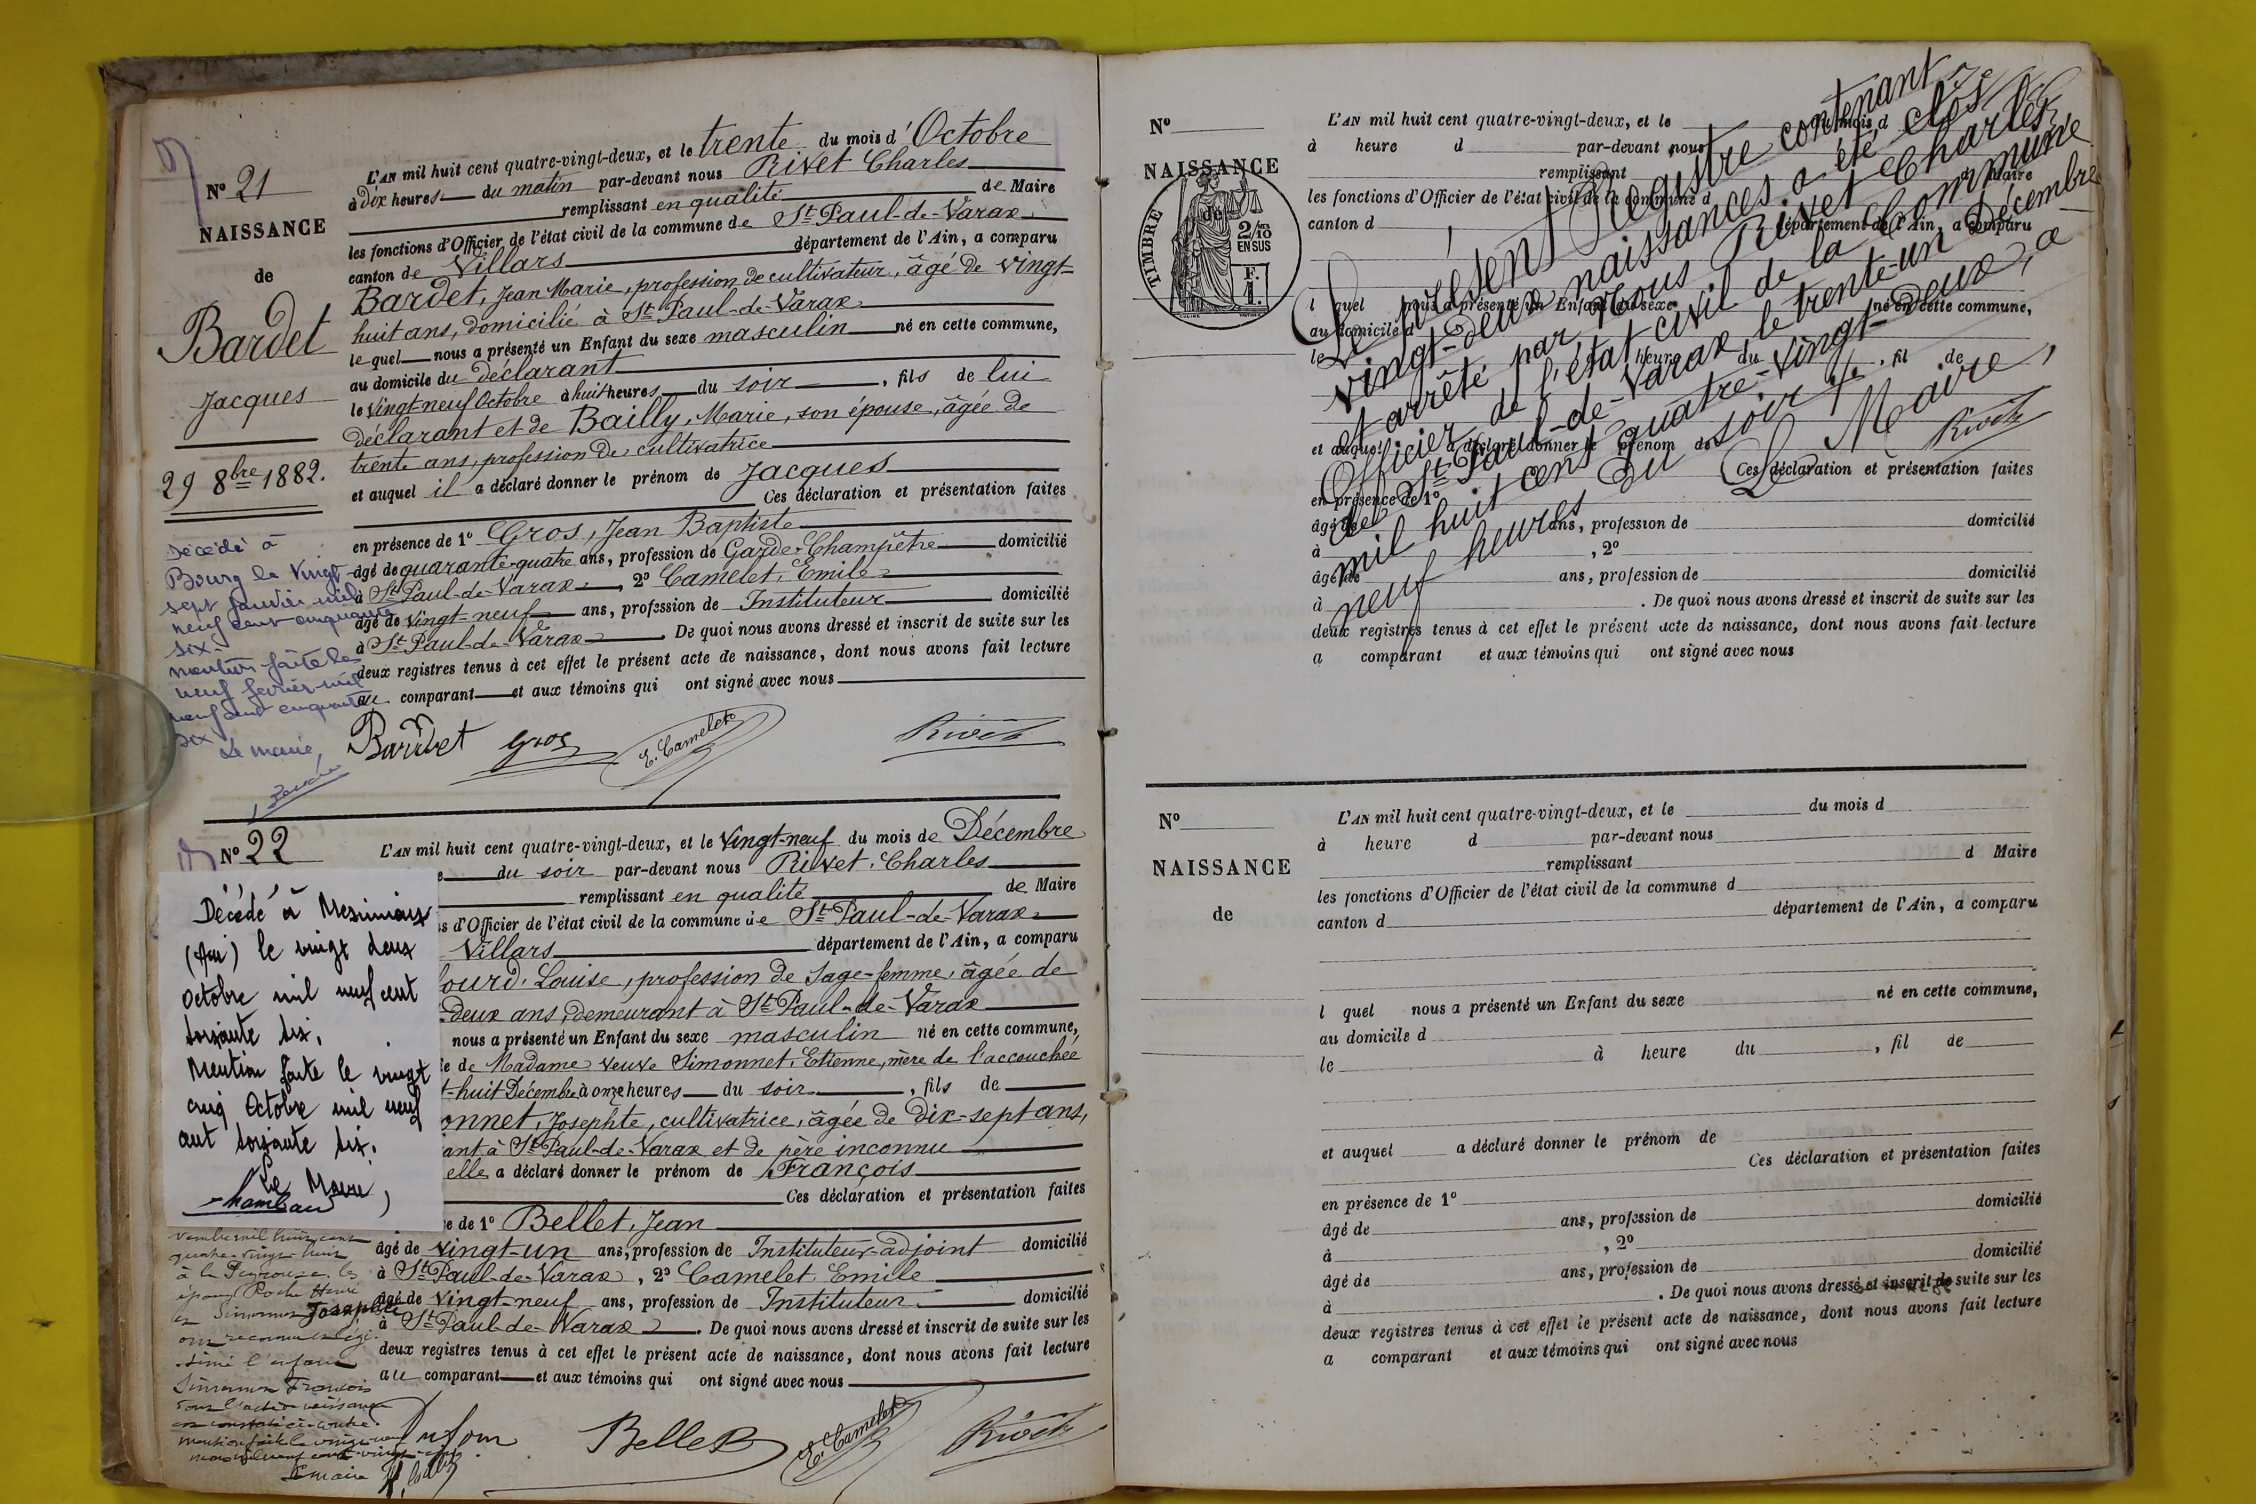 N° 21
NAISSANCE
de
Bardet
Jacques
29 8bre 1882.
Décédé à
Bourg le vingt-
sept janvier mil
neuf cent cinquante
six.
mention faite le
neuf février mil
neuf cent cinquante
six
Le maire,
L'AN mil huit cent quatre-vingt-deux, et le trente du mois d'Octobre
à dix heures du matin par-devant nous Rivet Charles
remplissant en qualité de Maire
les fonctions d'Officier de l'état civil de la commune de St Paul-de-Varax
canton de Villars département de l'Ain, a comparu
Bardet, Jean Marie, profession de cultivateur, âgé de vingt-
huit ans, domicilié à St Paul-de-Varax
le quel nous a présenté un Enfant du sexe masculin né en cette commune,
au domicile du déclarant
le vingt-neuf Octobre à huit heures du soir, fils de lui
déclarant et de Bailly, Marie, son épouse, âgée de
trente ans, profession de cultivatrice
et auquel il a déclaré donner le prénom de Jacques
Ces déclaration et présentation faites
en présence de 1° Gros, Jean Baptiste
âgé de quarante-quatre ans, profession de Garde-Champêtre domicilié
à St Paul-de-Varax, 2° Camelet, Emile
âgé de vingt-neuf ans, profession de Instituteur domicilié
à St Paul-de-Varax. De quoi nous avons dressé et inscrit de suite sur les
deux registres tenus à cet effet le présent acte de naissance, dont nous avons fait lecture
au comparant et aux témoins qui ont signé avec nous
Bardet Gros E. Camelet Rivet
N° 22
Décédé à Meximieux
(Ain) le vingt deux
octobre mil neuf cent
soixante six.
Mention faite le vingt
cinq Octobre mil neuf
cent soixante six.
Le Maire,
vembre mil huit cent
quatre-vingt huit
à la Peyrouse, les
époux Poché Henri
et Simonnet Josephte
ont reconnu et légi-
timé l'enfant
Simonnet François
dont l'acte de naissance
est constaté ci-contre.
mention faite le vingt-neuf
mars mil neuf cent-vingt-cinq.
Le maire
L'AN mil huit cent quatre-vingt-deux, et le vingt-neuf du mois de Décembre
du soir par-devant nous Rivet, Charles
remplissant en qualité de Maire
s d'Officier de l'état civil de la commune de St Paul-de-Varax
Villars département de l'Ain, a comparu
ourd, Louise, profession de Sage-femme, âgée de
-deux ans, demeurant à St Paul-de-Varax
nous a présenté un Enfant du sexe masculin né en cette commune,
e de Madame veuve Simonnet, Etienne, mère de l'accouchée
t-huit Décembre à onze heures du soir, fils de
onnet, Josephte, cultivatrice, âgée de dix-sept ans,
ant à St Paul-de-Varax et de père inconnu
elle a déclaré donner le prénom de François
Ces déclaration et présentation faites
e de 1° Bellet, Jean
âgé de vingt-un ans, profession de Instituteur-adjoint domicilié
à St Paul-de-Varax, 2° Camelet Emile
âgé de vingt-neuf ans, profession de Instituteur domicilié
à St Paul-de-Varax. De quoi nous avons dressé et inscrit de suite sur les
deux registres tenus à cet effet le présent acte de naissance, dont nous avons fait lecture
au comparant et aux témoins qui ont signé avec nous
Bellet E. Camelet Rivet
N°
NAISSANCE
de
TIMBRE
2/10 EN SUS
F.
1.
L'AN mil huit cent quatre-vingt-deux, et le du mois d
à heure d par-devant nous
remplissant d Maire
les fonctions d'Officier de l'état civil de la commune d
canton d département de l'Ain, a comparu
l quel nous a présenté un Enfant du sexe né en cette commune,
au domicile d
le à heure du, fil de
et auquel a déclaré donner le prénom de
Ces déclaration et présentation faites
en présence de 1°
âgé de ans, profession de domicilié
à, 2°
âgé de ans, profession de domicilié
à. De quoi nous avons dressé et inscrit de suite sur les
deux registres tenus à cet effet le présent acte de naissance, dont nous avons fait lecture
a comparant et aux témoins qui ont signé avec nous
Le présent Registre contenant
vingt-deux naissances a été clos
et arrêté par Nous Rivet Charles
Officier de l'état civil de la Commune
de St Paul-de-Varax le trente-un Décembre
mil huit cent quatre-vingt-deux, à
neuf heures du soir
Le Maire,
Rivet
N°
NAISSANCE
de
L'AN mil huit cent quatre-vingt-deux, et le du mois d
à heure d par-devant nous
remplissant d Maire
les fonctions d'Officier de l'état civil de la commune d
canton d département de l'Ain, a comparu
l quel nous a présenté un Enfant du sexe né en cette commune,
au domicile d
le à heure du, fil de
et auquel a déclaré donner le prénom de
Ces déclaration et présentation faites
en présence de 1°
âgé de ans, profession de domicilié
à, 2°
âgé de ans, profession de domicilié
à. De quoi nous avons dressé et inscrit de suite sur les
deux registres tenus à cet effet le présent acte de naissance, dont nous avons fait lecture
a comparant et aux témoins qui ont signé avec nous